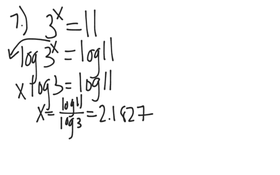 7.) 3^x = 11
log 3^x = log 11
x log 3 = log 11
x = log 11 / log 3 = 2.1827